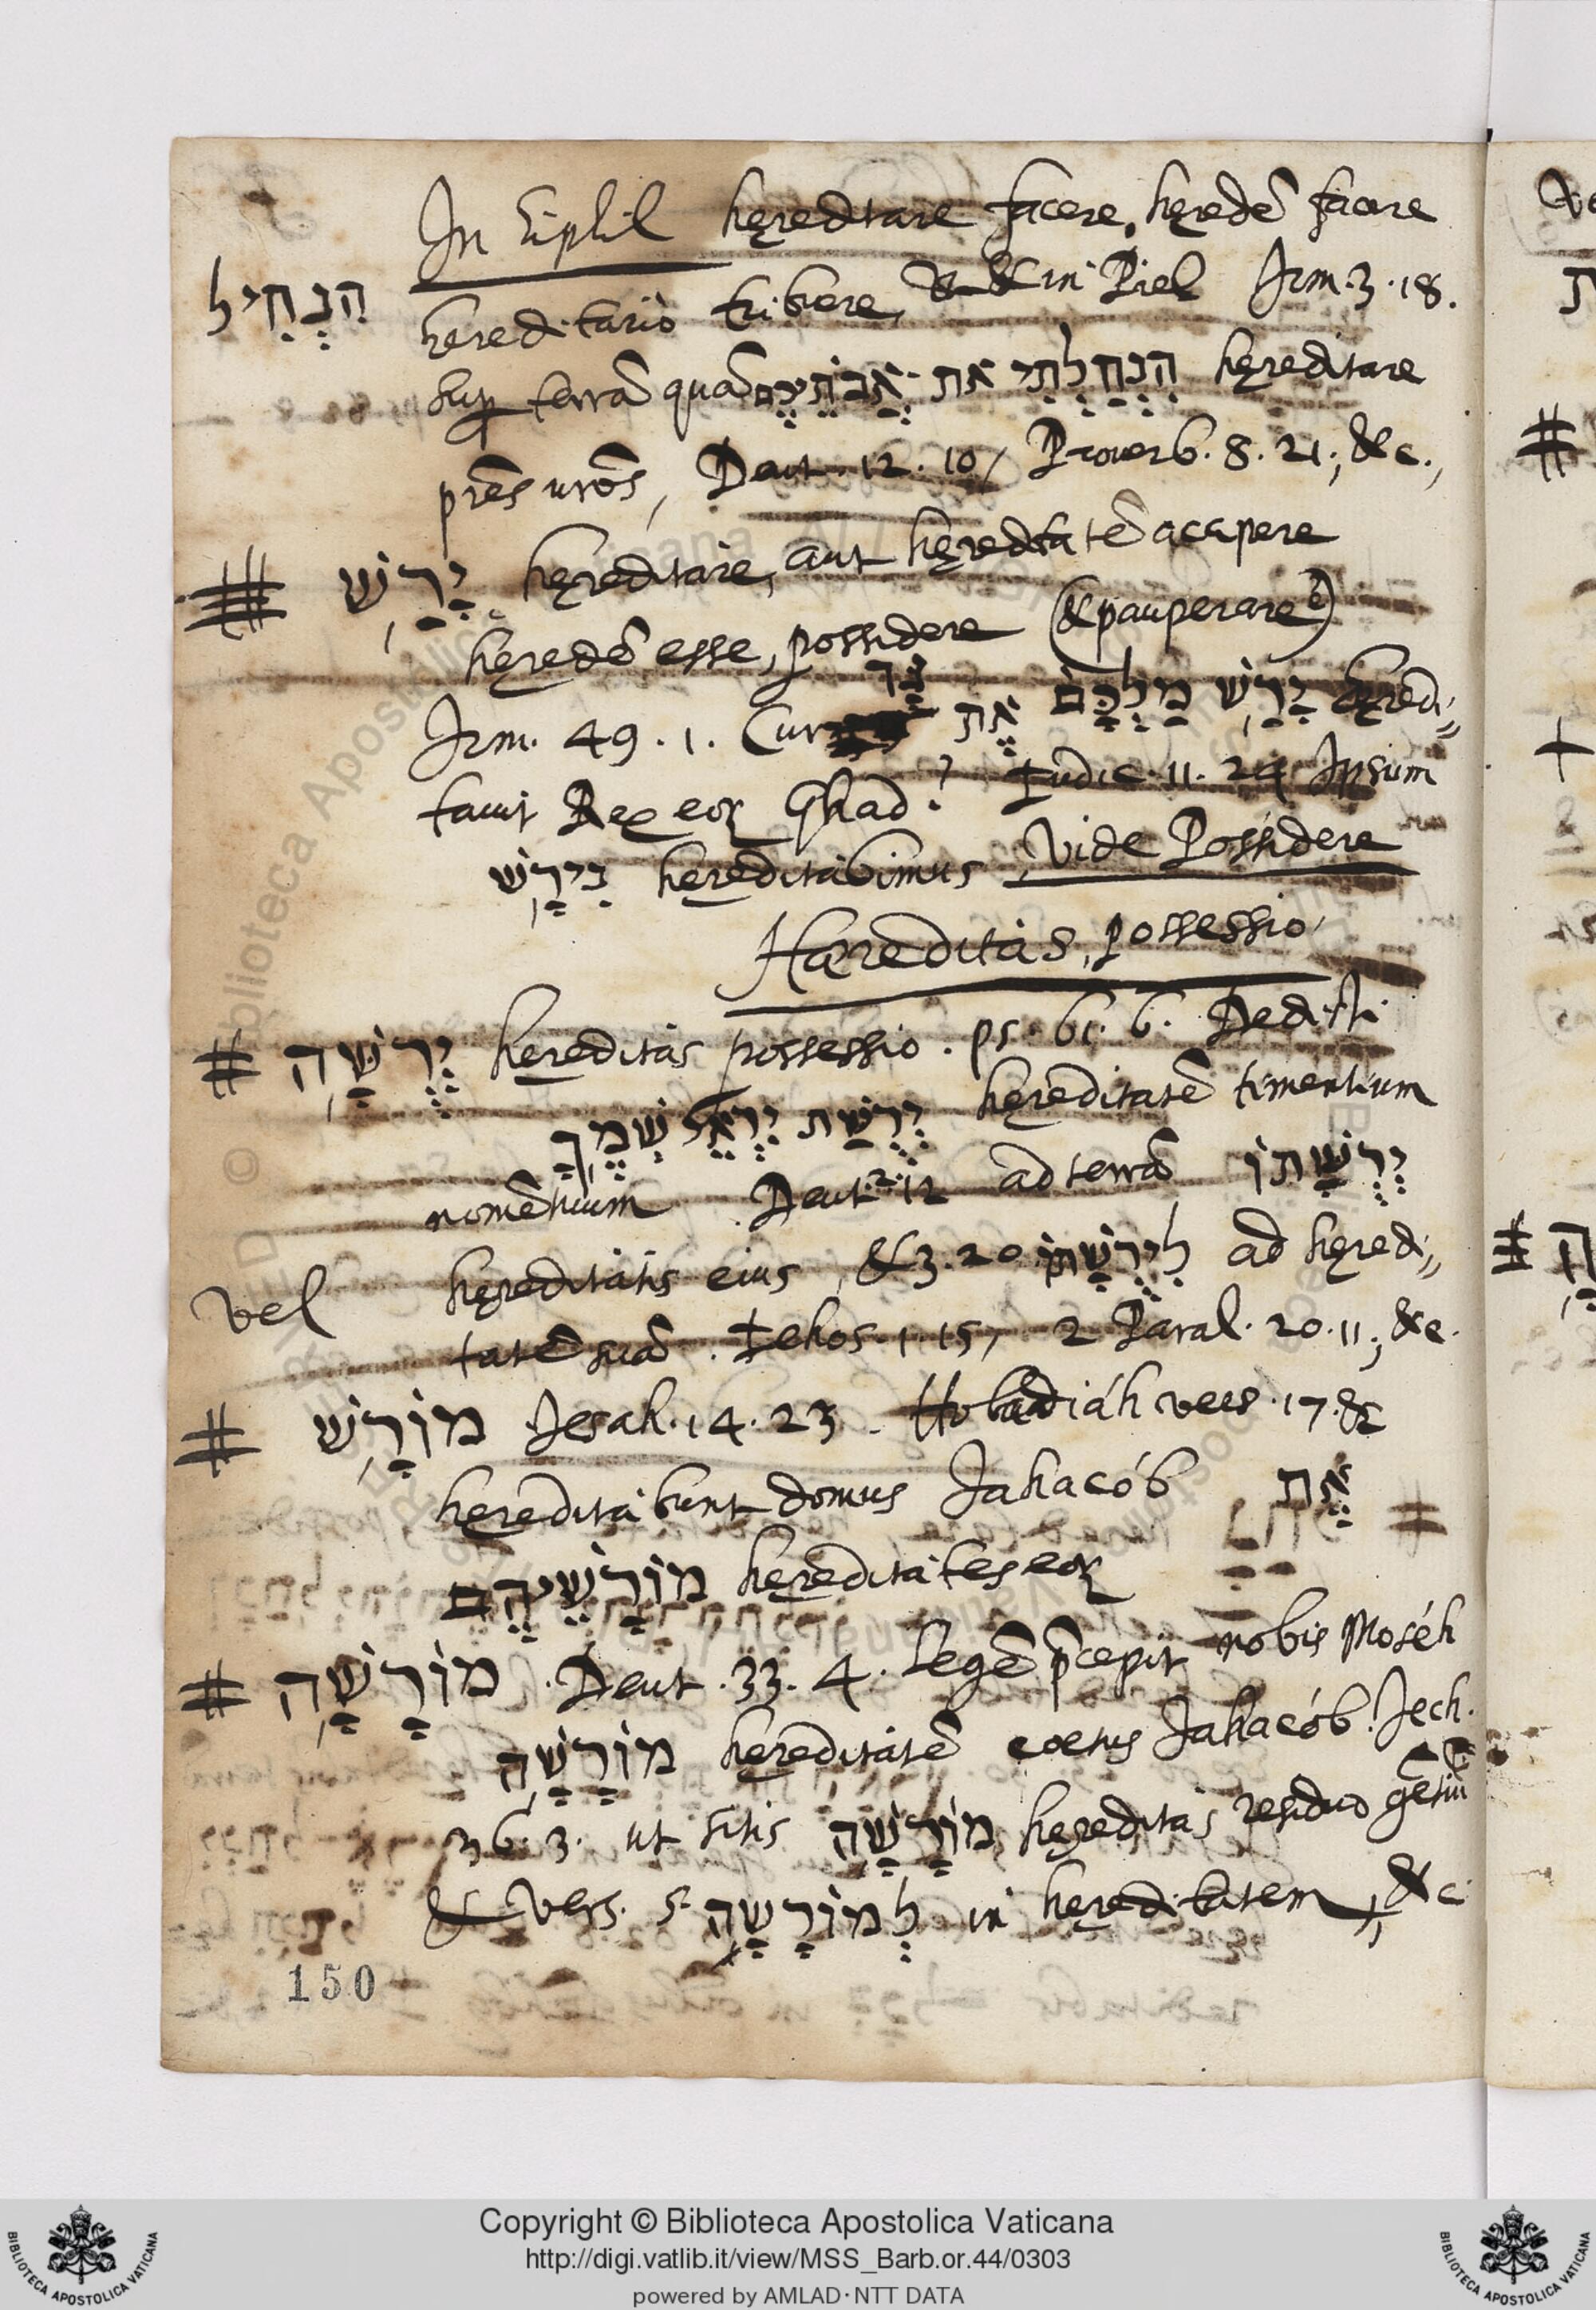 In Hiphil hęreditare facere, hęredē facere
הִנְחִיל hereditariò tribuere, & in Piel Irm. 3. 18.
sup terrā quā הִנְחַלְתִּי את אֲבוֹתֵיכֶם hęreditare
prēs urōs, Deut. 12. 10, Proverb. 8. 21., &c.,
יָרַשׁ hęreditare, aut hęreditatē accipere
hęredē esse, possidere (& pauperare)
Irm. 49. 1. Cur יָרַשׁ מַלְכָּם אֶת גָּד hęredi
tavit Rex eoꝝ Ghad? Iudic. 11. 24 Ipsum
נִירָשׁ hęreditabimus Vide Possidere
Hæreditas, possessio
# יְרֻשָּׁה hęreditas possessio. ps. 61. 6. Dedisti
יְרֻשַּׁת יִרְאֵי שְׁמֶךָ hęreditatē timentium
nomē tuum Deut. 2. 12 ad terrā יְרֻשָּׁתוֹ
vel hęreditatis eius, & 3. 20. לִירֻשָּׁתוֹ ad hęredi
tatē suā. Iehos. 1. 15, 2 Paral. 20. 11; &c.
# מוֹרָשׁ Jesah. 14. 23. Hobadiáh vers. 17. &
hęreditabunt domus Jahacób אֶת
מוֹרָשֵׁיהֶם hęreditates eoꝝ
# מוֹרָשָׁה Deut. 33. 4. Legē p̄cepit nobis Moséh
מוֹרָשָׁה hęreditatē coetus Jahacób. Jech.
36. 3. ut sitis מוֹרָשָׁה hęreditas residuo gētiū
& vers. 5. לְמוֹרָשָׁה in hęreditatem, &c
150
Copyright © Biblioteca Apostolica Vaticana
http://digi.vatlib.it/view/MSS_Barb.or.44/0303
powered by AMLAD·NTT DATA
BIBLIOTECA APOSTOLICA VATICANA
BIBLIOTECA APOSTOLICA VATICANA